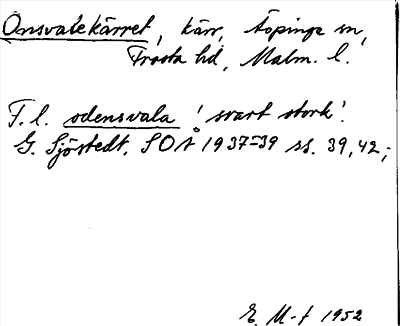 Onsvalekärret, kärr, Äspinge sn,
Frosta hd, Malm. l.
T. l. odensvala 'svart stork'.
G. Sjöstedt, SOÅ 1937-39 ss. 39, 42;
E. M-f 1952